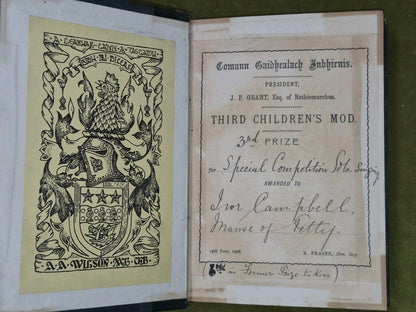 A LEABHAR-LANN A THSGAIDH
BORN IN DECEASE
A·A·WILSON·MB·ChB
Comunn Gaidhealach Inbhirnis.
PRESIDENT,
J. P. GRANT, Esq. of Rothiemurchus.
THIRD CHILDREN'S MOD.
3rd PRIZE
for Special Competition Solo Singing
AWARDED TO
Ivor Campbell,
Manse of Petty.
19th June, 1908.
E. FRASER, Hon. Secy.
Former Prize-takers)